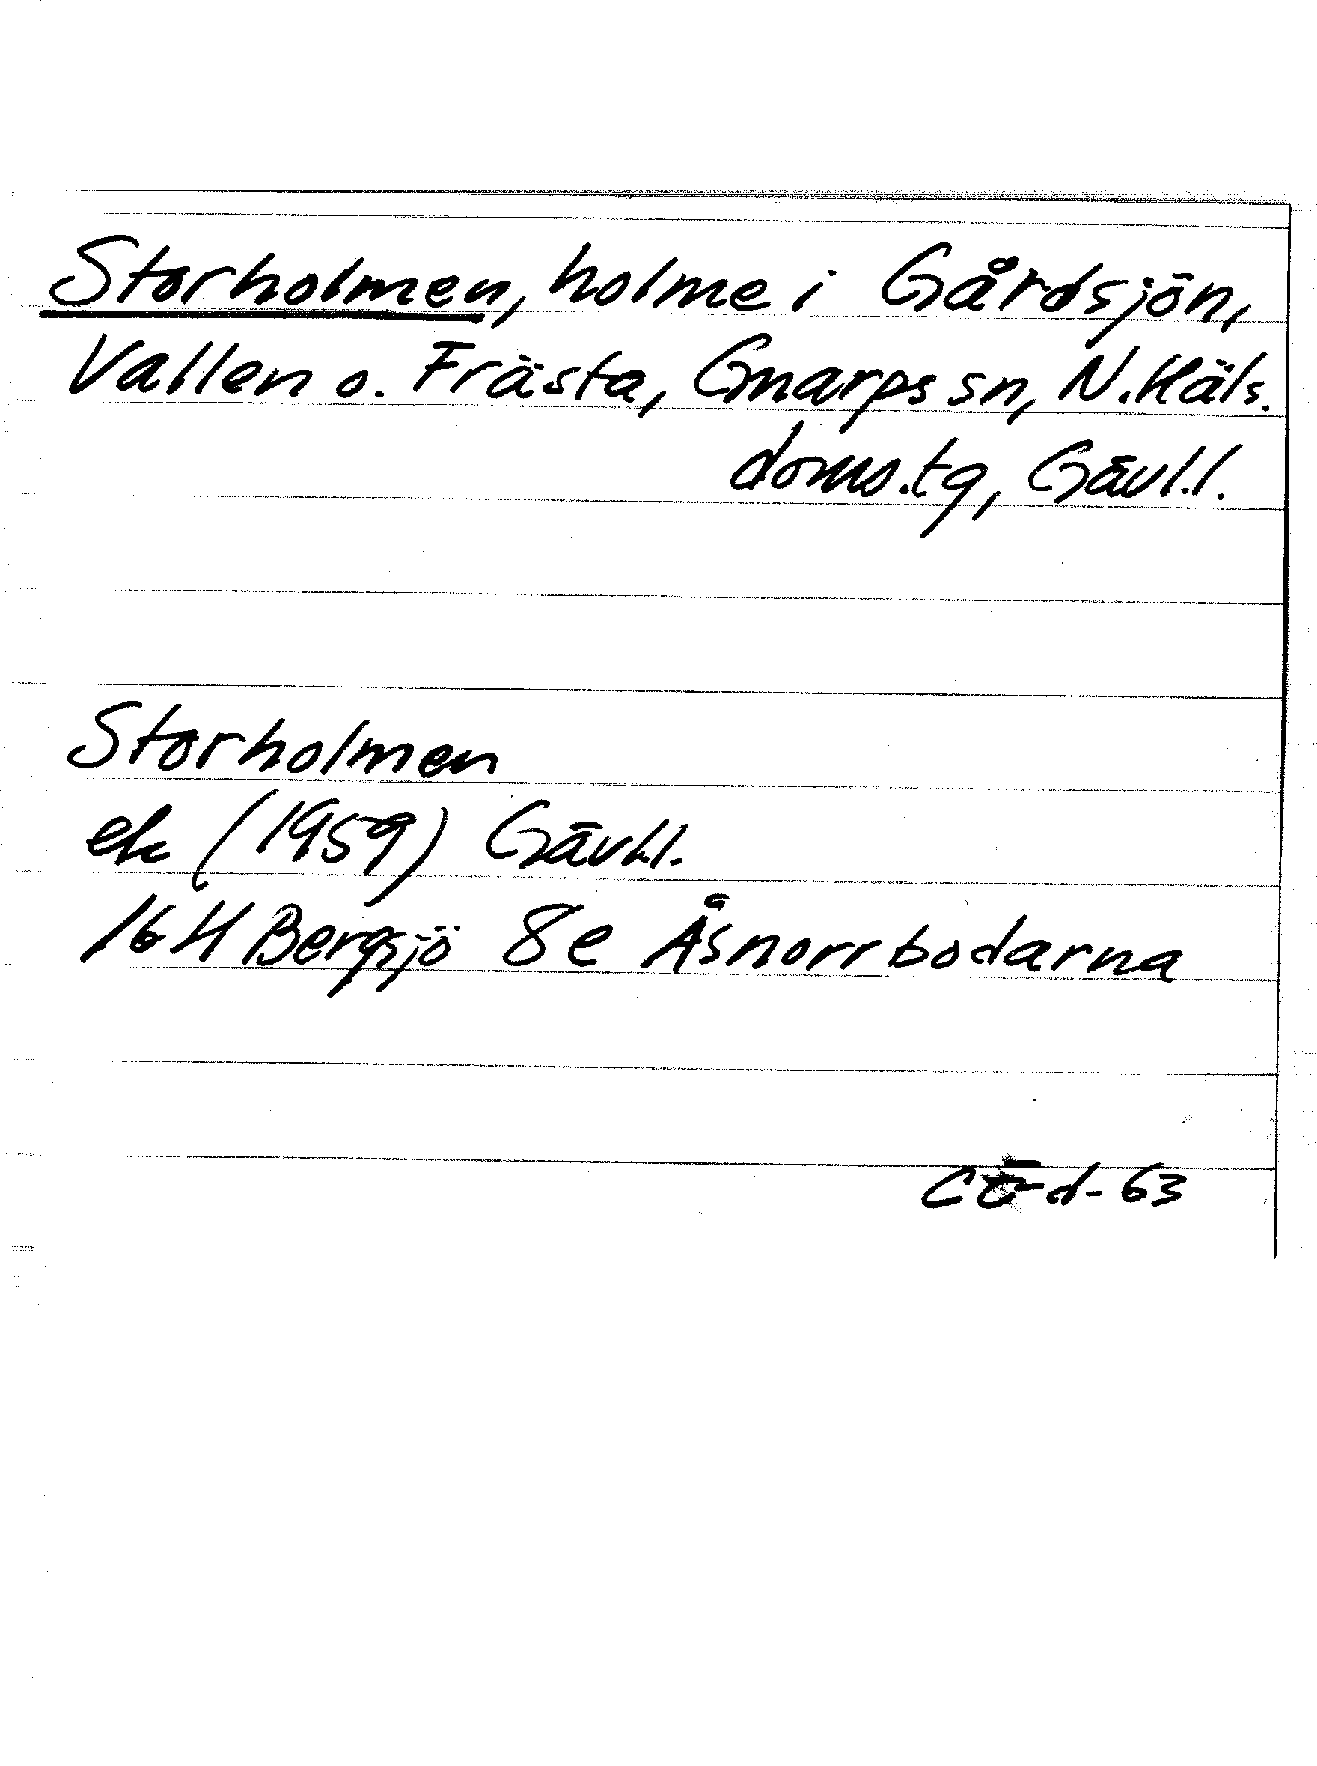 Storholmen, holme i Gårdsjön,
Vallen o. Frästa, Gnarps sn, N. Häls.
doms.tg, Gävl.l.
Storholmen
ek (1959) Gävl.l.
16 H Bergsjö 8e Åsnorrbodarna
CÖ-d- 63